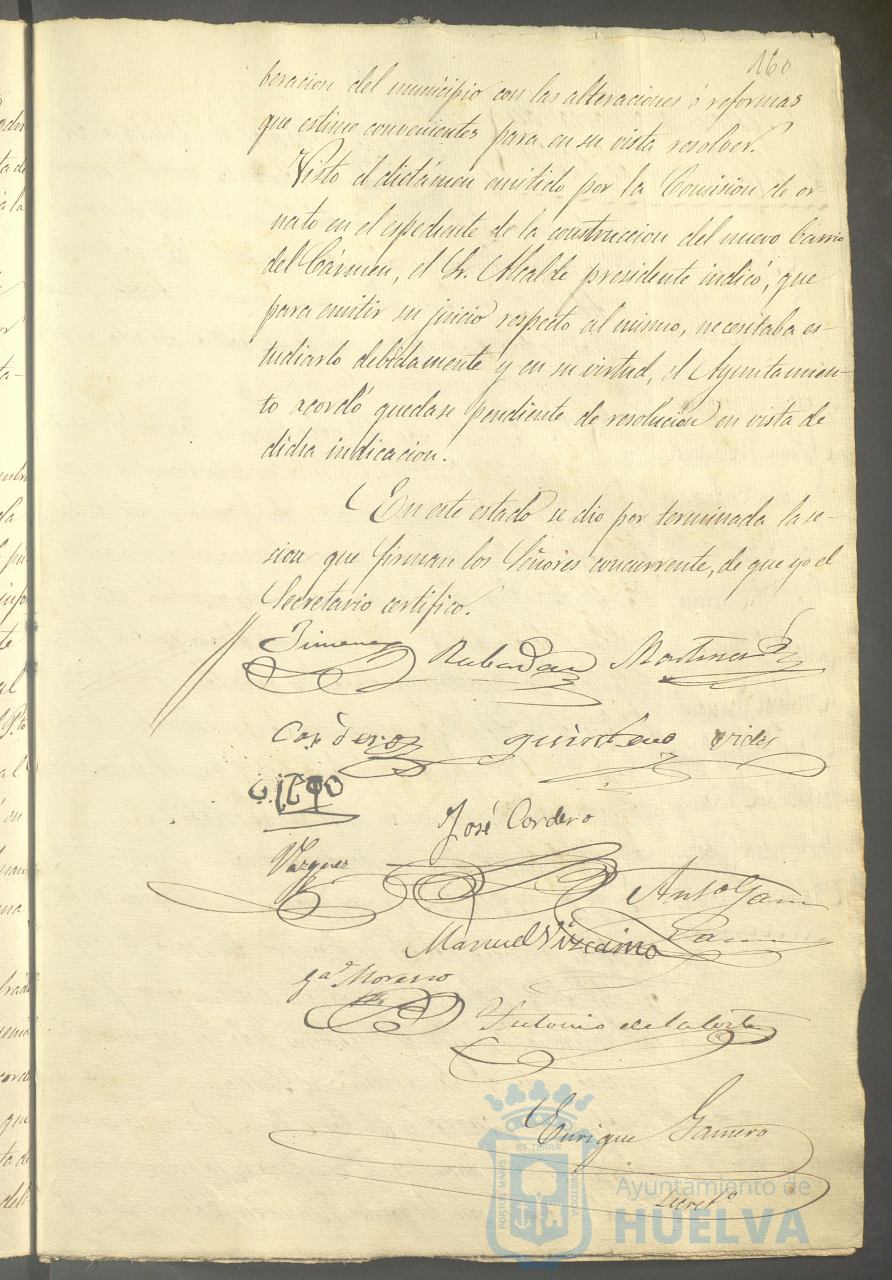 160
beracion del municipio con las alteraciones ó reformas
que estime convenientes para en su vista resolver.
Visto el dictámen emitido por la Comision de or-
nato en el espediente de la construccion del nuevo barrio
del Cármen, el Sr. Alcalde presidente indicó, que
para emitir su juicio respecto al mismo, necesitaba es-
tudiarlo debidamente y en su virtud, el Ayuntamien-
to acordó quedase pendiente de resolucion en vista de
dicha indicacion.
En este estado se dio por terminada la se-
sion que firman los Señores concurrente, de que yo el
Secretario certifico.
Jimenez Rubadan Martinez
Cordero quintero vides
José Cordero
Vazquez
Antº Garcia
Manuel Vizcaino
Gª Moreno
Antonio de la Corte
Enrique Gamero
Secretº
PORTUS MARIS ET TERRÆ CUSTODIA
Ayuntamiento de
HUELVA